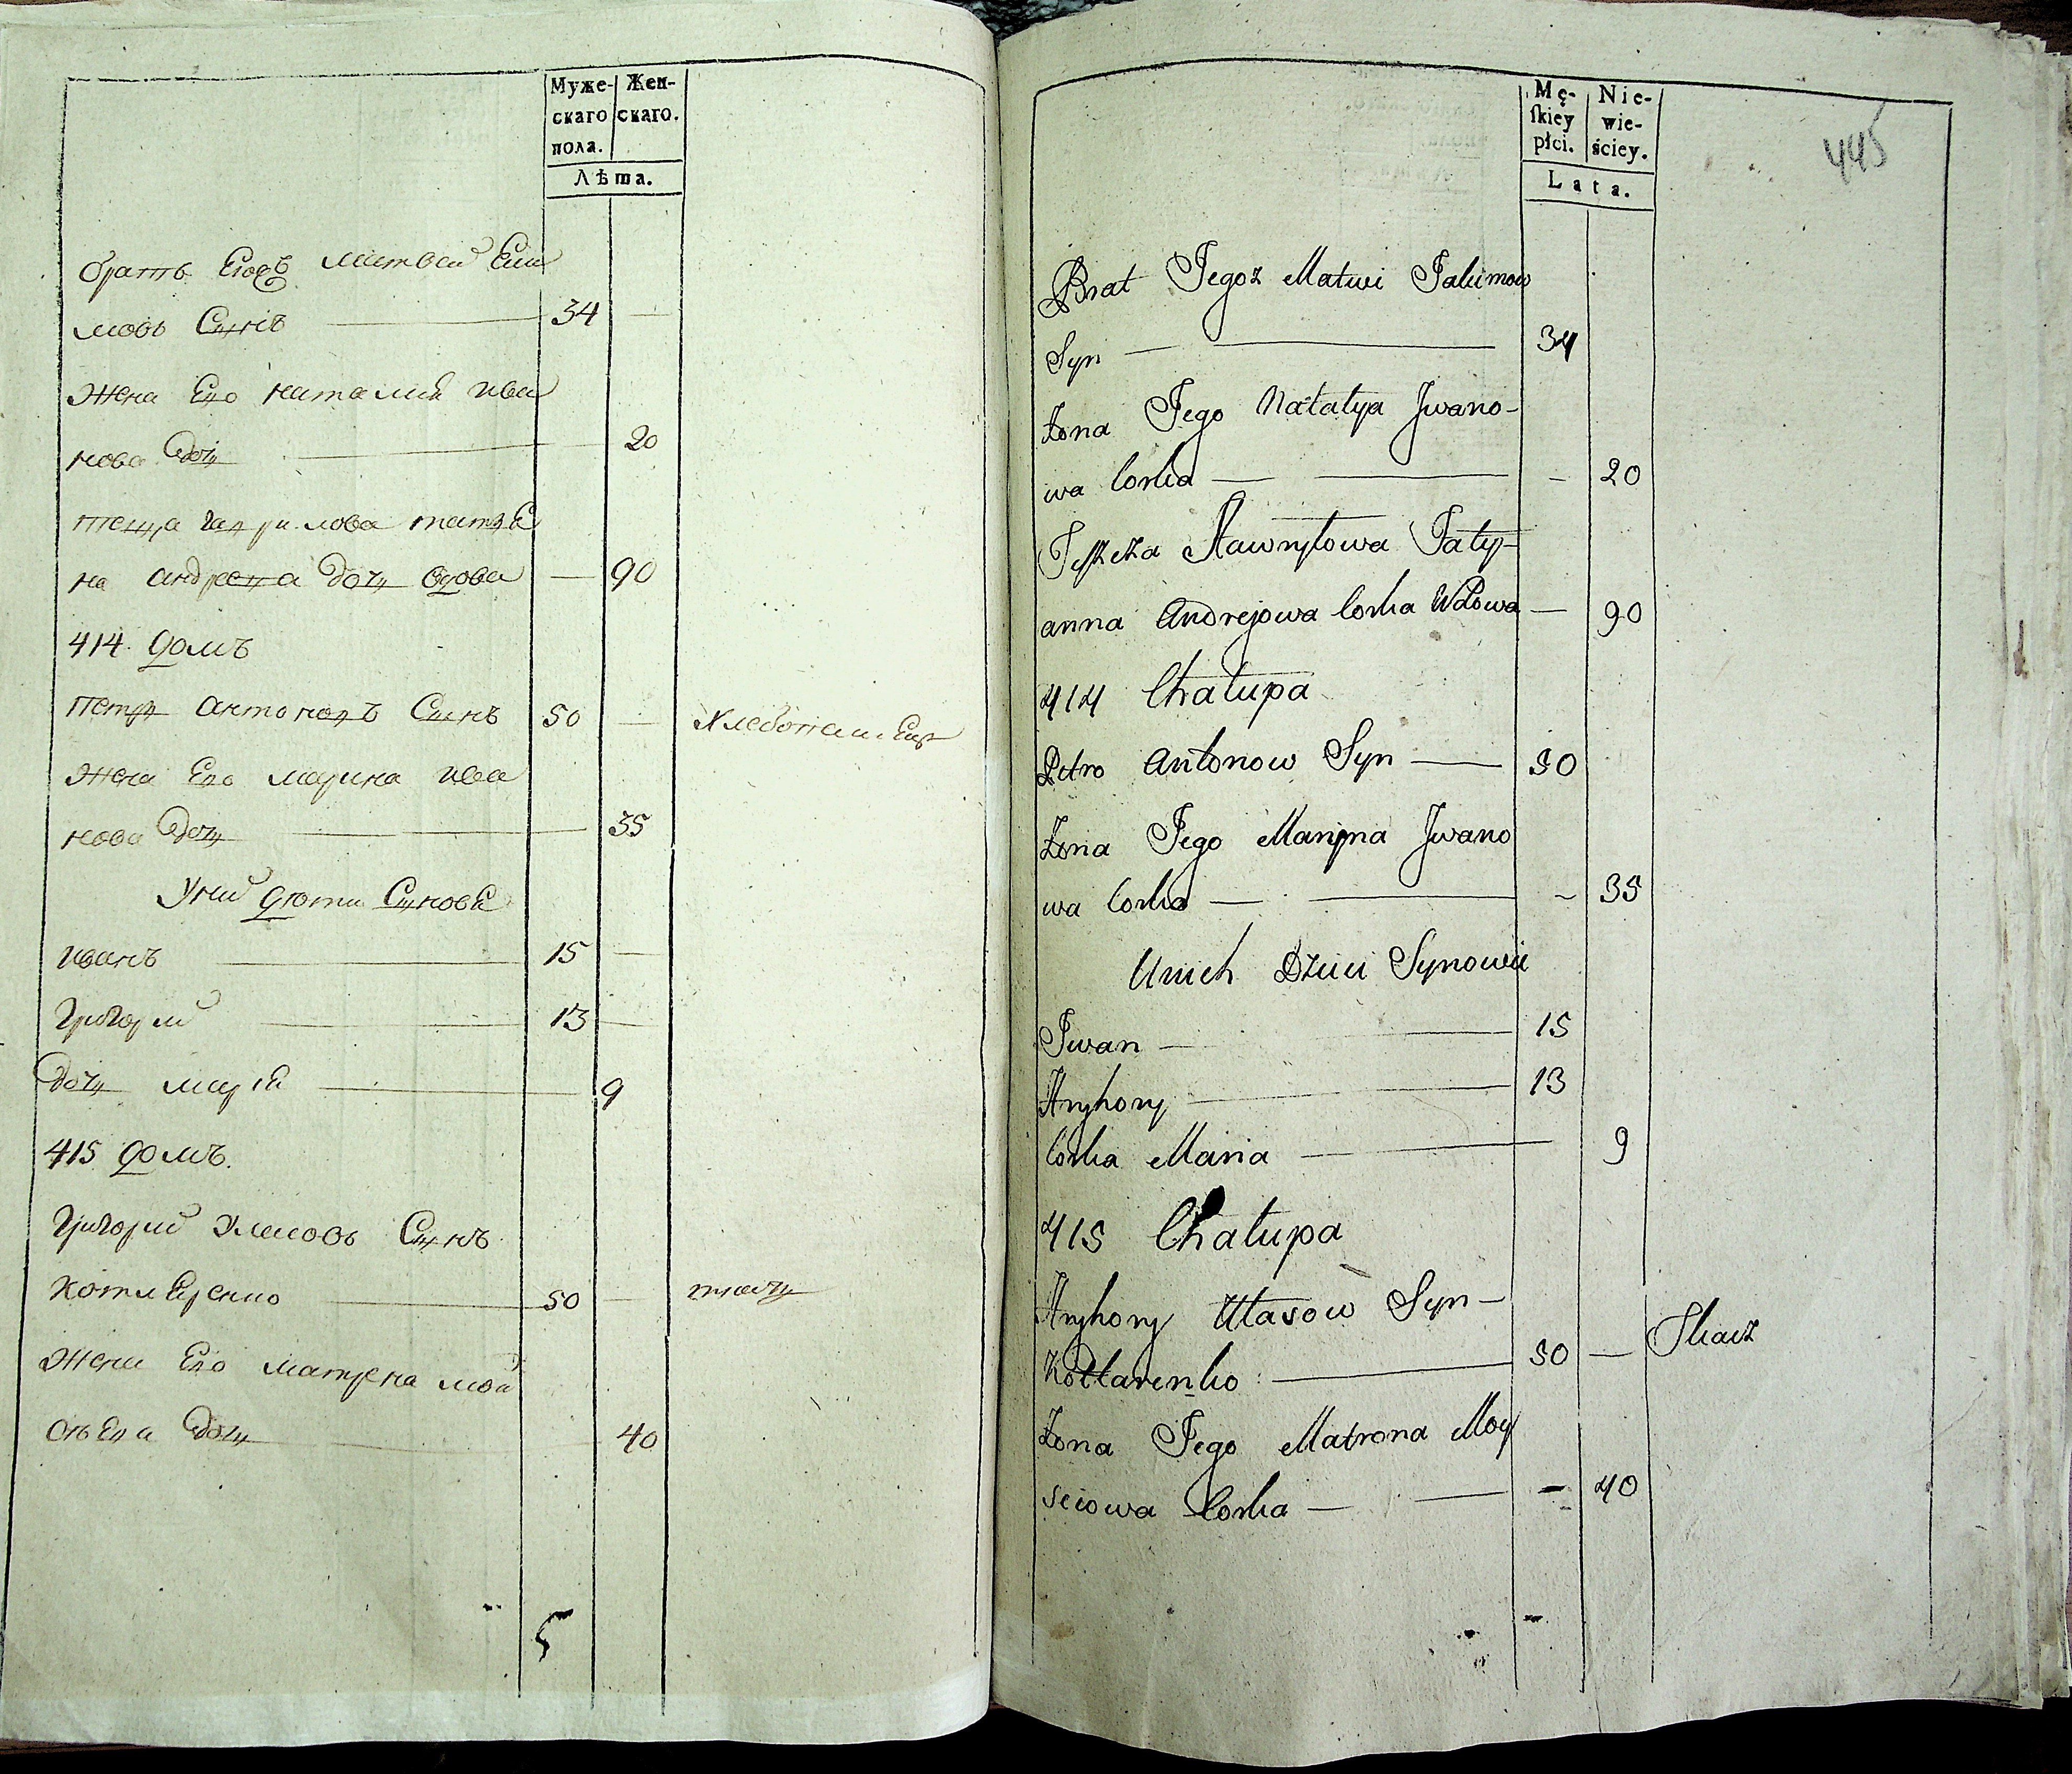 Муже-
скаго
пола.
Жен-
скаго.
Лѣта.
братъ Егожъ матвей Еки
мовъ Сынъ 34
жена Его наталия ива
нова дочь 20
теща гаврилова татья
на андреева дочь вдова — 90
414 домъ
петръ антоновъ Сынъ 50 — хлебопашецъ
жена Его марина ива
нова дочь 35
У ний дети Синовья
иванъ 15 —
григорий 13 —
дочь мария 9
415 домъ.
григорий Уласовъ Сынъ
котляренко 50 — ткачь
жена Его матрена мой
сѣева дочь 40
5
Mę-
ſkiey
płci.
Nie-
wie-
ściey.
Lata.
445
Brat Jegoż Matwi Jakimow
Syn 34
Żona Jego Natalya Jwano-
wa Corka — 20
Teszcza Hawryłowa Taty-
anna Andrejowa Corka Wdowa — 90
414 Chałupa
Petro Antonow Syn — 50
Żona Jego Maryna Jwano
wa Corka — 35
Unich Dzieci Synowie
Jwan — 15
Hryhory 13
Corka Maria 9
415 Chałupa
Hryhory Ułasow Syn —
Kotlarenko 50 — Tkacz
Żona Jego Matrona Moy
seiowa Corka — 40